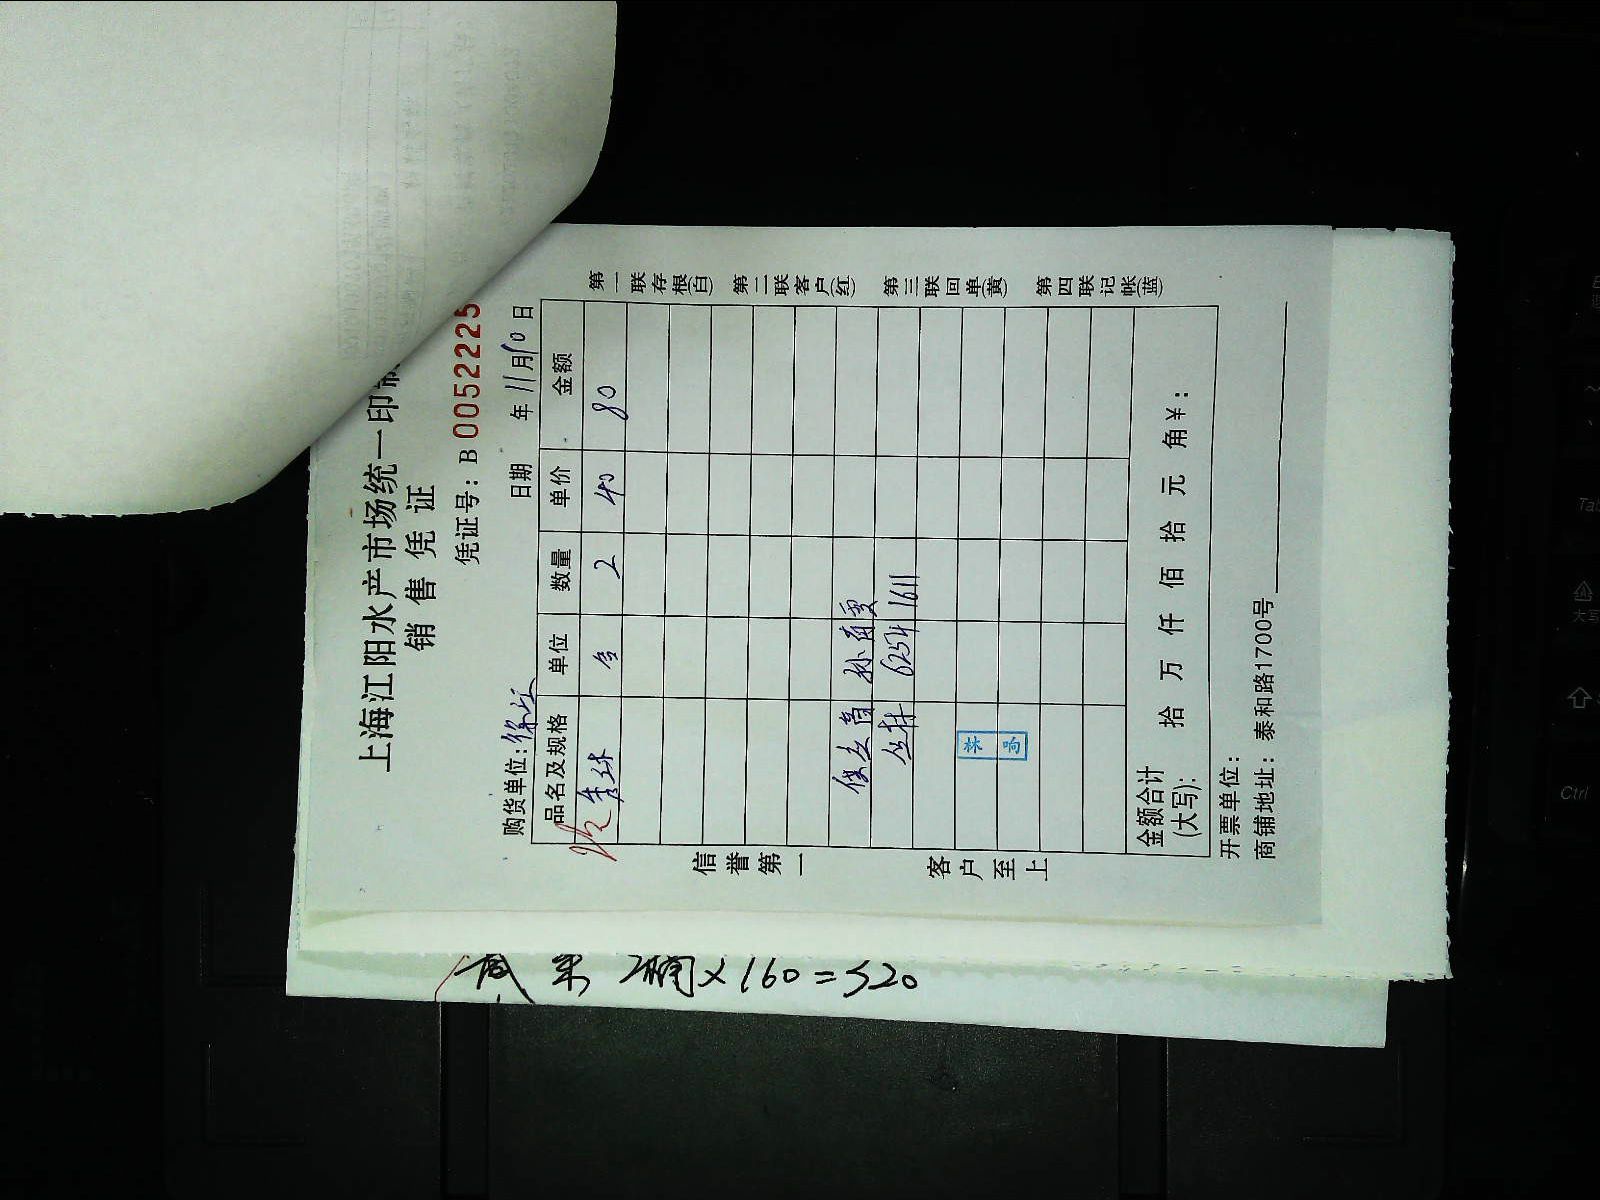 上海江阳水产市场统一印制
销售凭证
凭证号：B 0052225
购货单位：
日期 年 11 月 10 日
品名及规格 单位 数量 单价 金额
2 40 80
6254 1611
林 响
金额合计(大写)： 拾 万 仟 佰 拾 元 角 ¥：
开票单位：
商铺地址：泰和路1700号
信誉第一 客户至上
第一联存根(白) 第二联客户(红) 第三联回单(黄) 第四联记帐(蓝)
×160=320
Ctrl